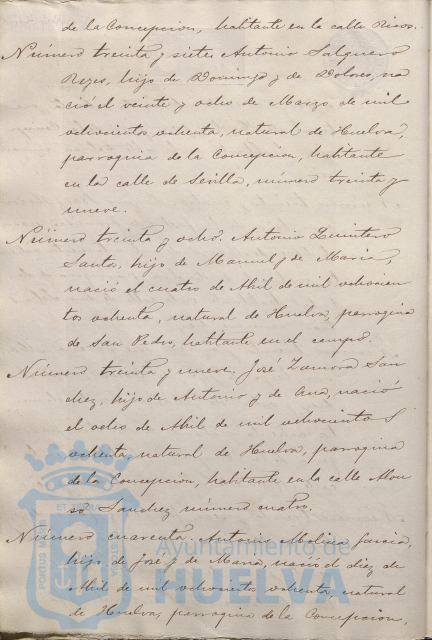 de la Concepcion, habitante en la calle Ricos.
Número treinta y siete. Antonio Salguero
Reyes, hijo de Domingo y de Dolores, na
ció el veinte y ocho de Marzo de mil
ochocientos ochenta, natural de Huelva,
parroquia de la Concepcion, habitante
en la calle de Sevilla, número treinta y
nueve.
Número treinta y ocho. Antonio Quintero
Santos, hijo de Manuel y de Maria,
nació el cuatro de Abril de mil ochocien
tos ochenta, natural de Huelva, parroquia
de San Pedro, habitante en el campo.
Número treinta y nueve. José Zamora San
chez, hijo de Antonio y de Ana, nació
el ocho de Abril de mil ochocientos
ochenta, natural de Huelva, parroquia
de la Concepcion, habitante en la calle Alon
so Sanchez número cuatro.
Número cuarenta. Antonio Molina Garcia,
hijo de José y de Maria, nació el diez de
Abril de mil ochocientos ochenta, natural
de Huelva, parroquia de la Concepcion,
Ayuntamiento de
HUELVA